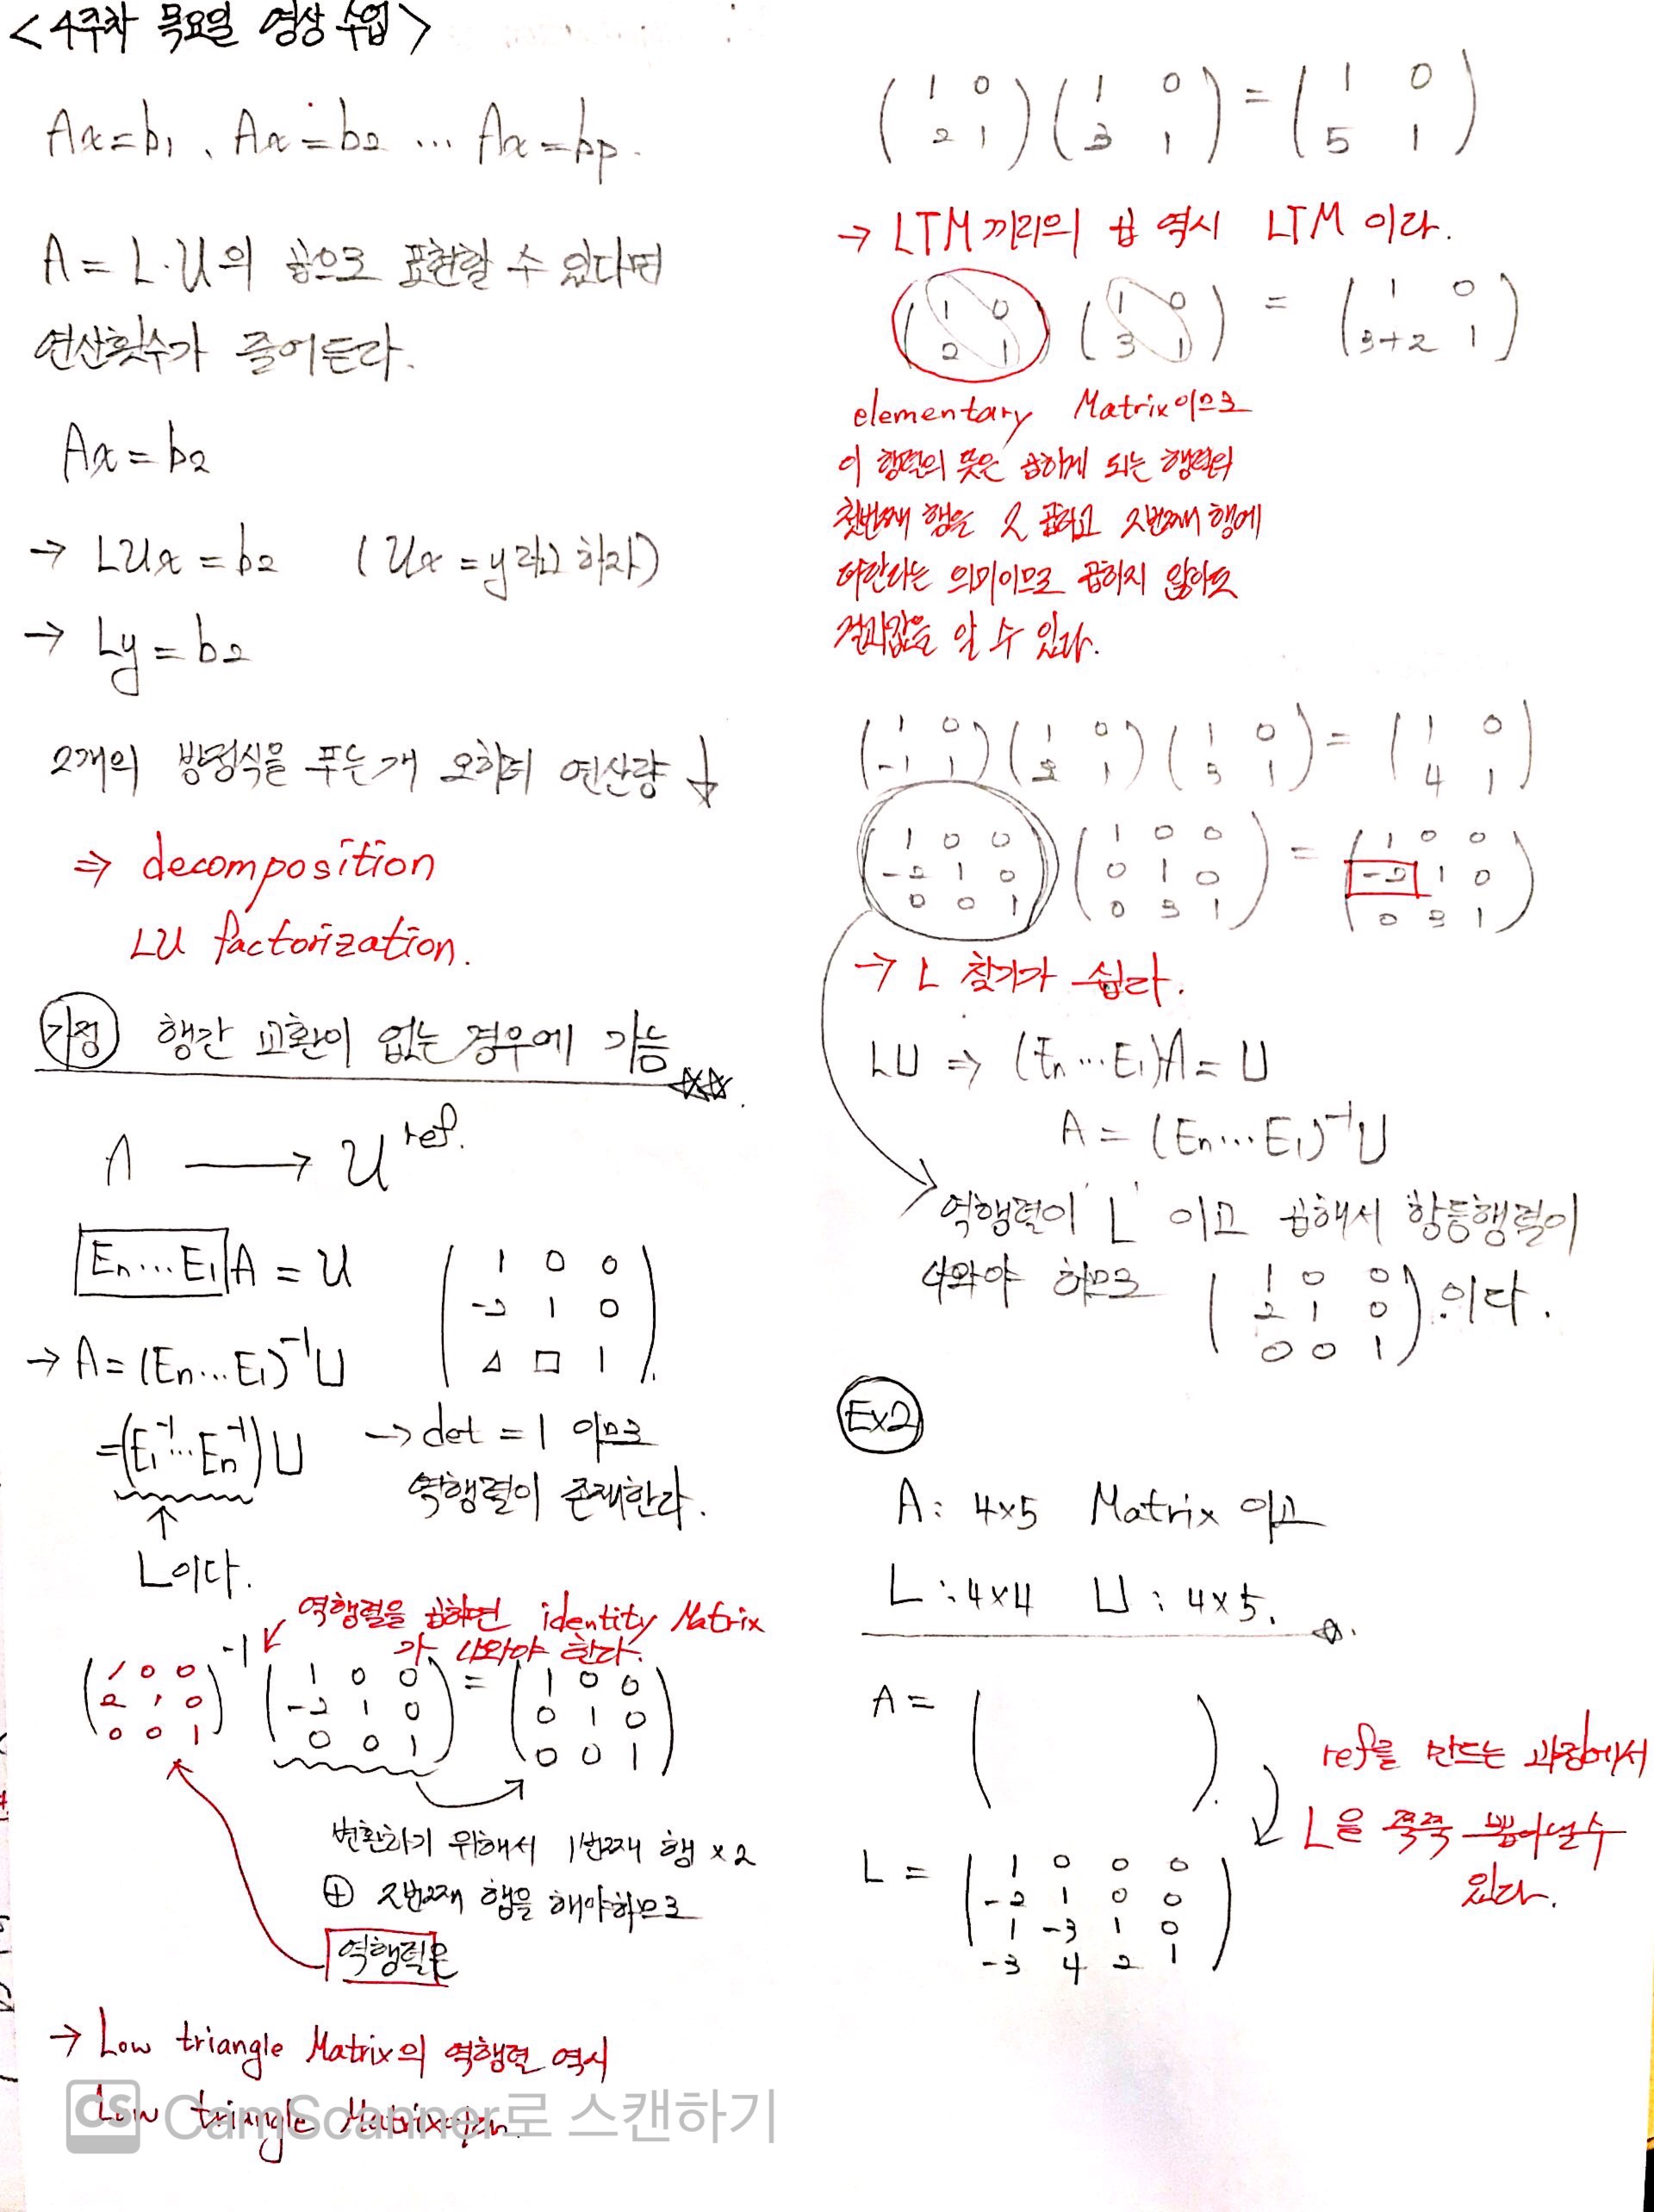 <4주차 목요일 영상 수업>
Ax=b1, Ax=b2 ... Ax=bp.
A = L·U의 곱으로 표현할 수 있다면
연산횟수가 줄어든다.
Ax = b2
→ LUx = b2 (Ux = y라고 하자)
→ Ly = b2
2개의 방정식을 푸는게 오히려 연산량 ↓
⇒ decomposition
LU factorization.
가정 행간 교환이 없는 경우에 가능 ☆☆.
A → U ref.
En...E1 A = U
1 0 0
-2 1 0
△ □ 1
→ A = (En...E1)⁻¹U
=(E1⁻¹...En⁻¹)U
→ det = 1 이므로
역행렬이 존재한다.
↑
L이다.
역행렬을 곱하면 identity Matrix
가 나와야 한다.
(1 0 0)⁻¹ (1 0 0) = (1 0 0)
(2 1 0) (-2 1 0) (0 1 0)
(0 0 1) (0 0 1) (0 0 1)
변환하기 위해서 1번째 행 × 2
⊕ 2번째 행을 해야하므로
역행렬은
→ Low triangle Matrix의 역행렬 역시
Low triangle Matrix
CS CamScanner로 스캔하기
(1 0) (1 0) = (1 0)
(2 1) (3 1) (5 1)
→ LTM 끼리의 곱 역시 LTM 이다.
(1 0) (1 0) = (1 0)
(2 1) (3 1) (3+2 1)
elementary Matrix이므로
이 행렬의 뜻은 곱하게 되는 행렬의
첫번째 행을 2 곱하고 2번째 행에
더한다는 의미이므로 곱하지 않아도
결과값을 알 수 있다.
(1 0) (1 0) (1 0) = (1 0)
(-1 1) (2 1) (3 1) (4 1)
(1 0 0) (1 0 0) = (1 0 0)
(-2 1 0) (0 1 0) (-2 1 0)
(0 0 1) (0 3 1) (0 3 1)
→ L 찾기가 쉽다.
LU ⇒ (En...E1)A = U
A = (En...E1)⁻¹U
역행렬이 'L' 이고 곱해서 항등행렬이
나와야 하므로
(1 0 0)
(2 1 0) 이다.
(0 0 1)
Ex2
A: 4×5 Matrix 이고
L: 4×4 U: 4×5. ☆.
A = ( ).
ref를 만드는 과정에서
L을 쭉쭉 뽑아낼 수
있다.
L = (1 0 0 0)
(-2 1 0 0)
(1 -3 1 0)
(-3 4 2 1)